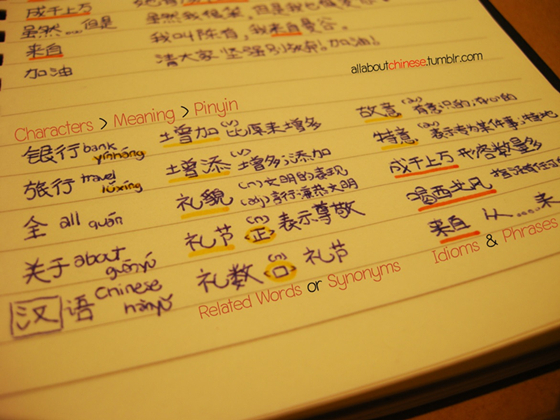 成千上万
虽然...但是 虽然我很笨，但是我也很
来自 我叫陈育，我来自曼谷。
加油 请大家坚强别放弃！加油！
allaboutchinese.tumblr.com
Characters > Meaning > Pinyin
银行 bank yínháng
旅行 travel lǚxíng
全 all quán
关于 about guānyú
汉语 Chinese hànyǔ
增加 (v) 比原来增多
增添 (v) 增多；添加
礼貌 (n) 文明的表现 (adj) 言行谦恭文明
礼节 (n) 正 表示尊敬
礼数 (n) 口 礼节
Related Words or Synonyms
故意 有意识的，存心的
特意 表示专为某件事；特地
成千上万 形容数量多
喝西北风
来自 从...来
Idioms & Phrases